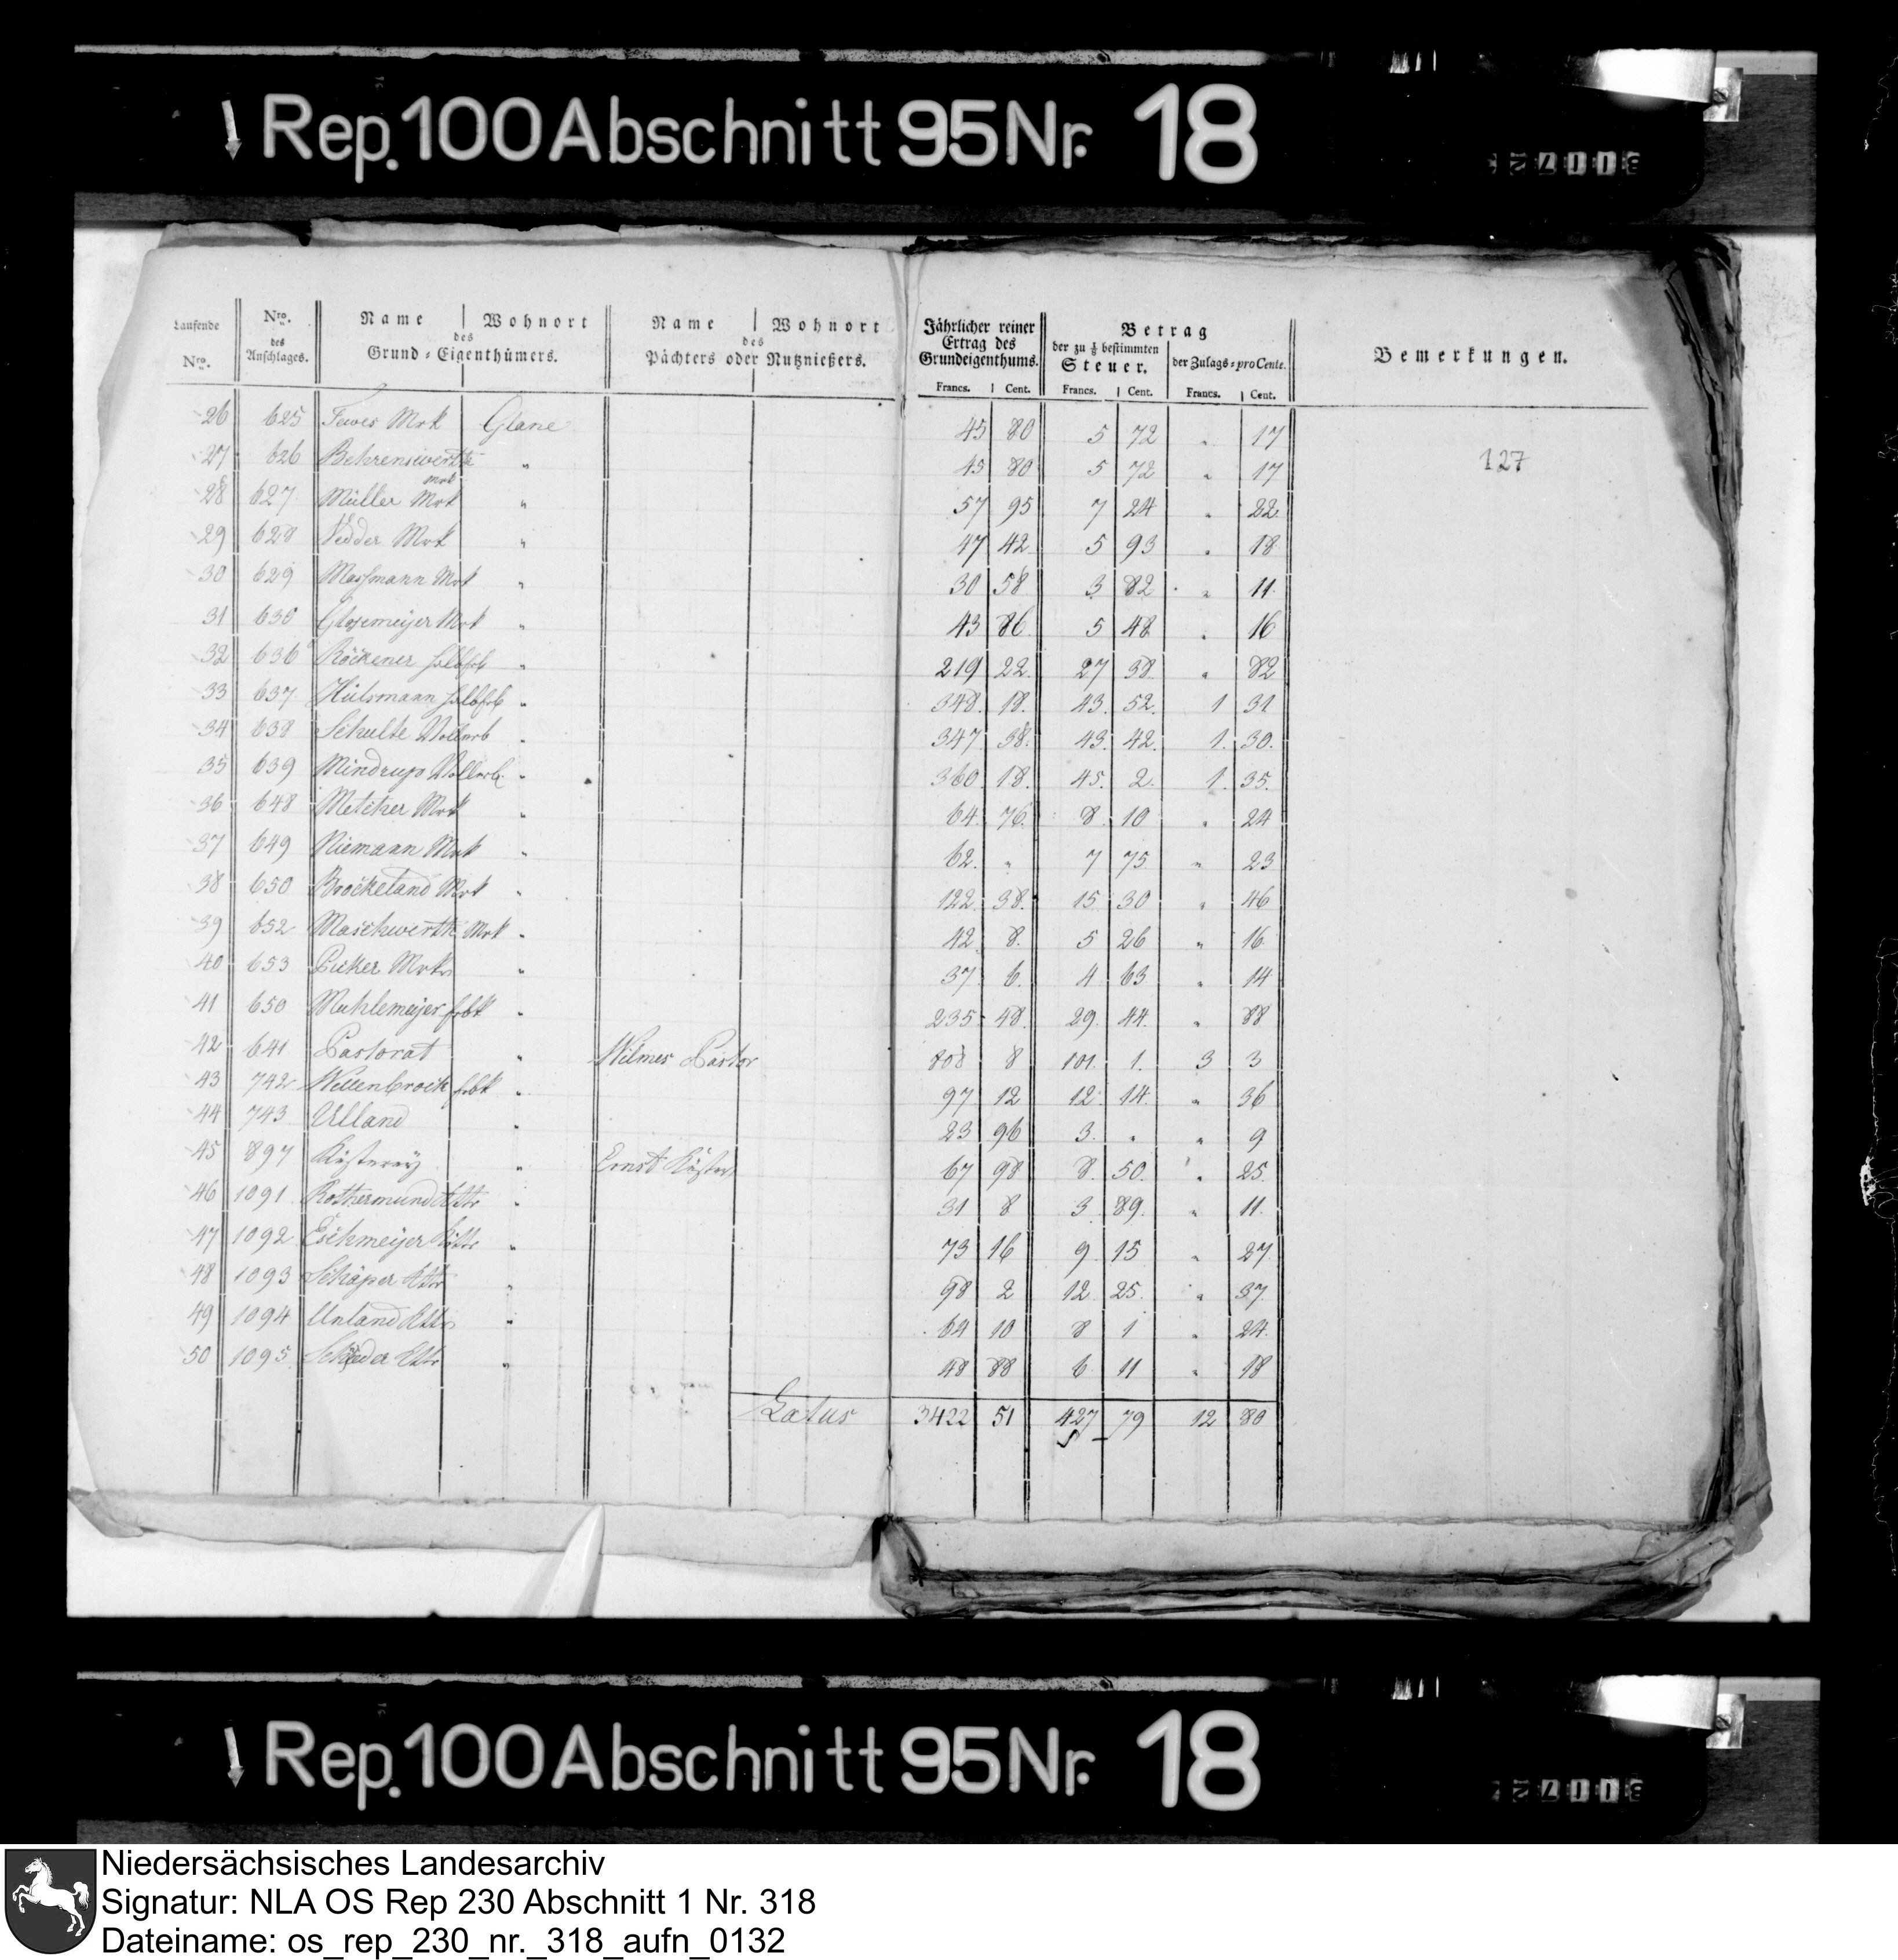 Rep. 100 Abschnitt 95 Nr. 18
Laufende Nro. | Nro. des Anschlages. | Name | Wohnort des Grund-Eigenthümers. | Name | Wohnort des Pächters oder Nutznießers. | Jährlicher reiner Ertrag des Grundeigenthums. Francs. | Cent. | Betrag der zu 1/8 bestimmten Steuer. Francs. | Cent. | der Zulags-pro Cente. Francs. | Cent. | Bemerkungen.
127
26 625 Tewes Mrk Glane 45 80 5 72 " 17
27 626 Behrenswerth Mrk " 45 80 5 72 " 17
28 627 Müller Mrk " 57 95 7 24 " 22
29 628 Vedder Mrk " 47 42 5 93 " 18
30 629 Massmann Mrk " 30 58 3 82 " 11
31 630 Glosemeijer Mrk " 43 86 5 48 " 16
32 636 Röckener Halberb " 219 22 27 38 " 82
33 637 Hülsmann Halberb " 348 18 43 52 1 31
34 638 Schulte Vollerb " 347 38 43 42 1 30
35 639 Mindrup Vollerb " 360 18 45 2 1 35
36 648 Metcher Mrk " 64 76 8 10 " 24
37 649 Niemann Mrk " 62 " 7 75 " 23
38 650 Brockeland Mrk " 122 38 15 30 " 46
39 652 Maschwerth Mrk " 42 8 5 26 " 16
40 653 Picker Mrk " 37 6 4 63 " 14
41 650 Muhlemeijer Erbk " 235 48 29 44 " 88
42 641 Pastorat " Wilmes Pastor 808 8 101 1 3 3
43 742 Wellenbrock Erbk " 97 12 12 14 " 36
44 743 Ulland " 23 96 3 " " 9
45 897 Küsterey " Ernst Küster 67 98 8 50 " 25
46 1091 Rothermund Kttr " 31 8 3 89 " 11
47 1092 Eschmeijer Köttr " 73 16 9 15 " 27
48 1093 Schäper Kttr " 98 2 12 25 " 37
49 1094 Unland Kttr " 64 10 8 1 " 24
50 1095 Kttr " 48 88 6 11 " 18
Latus 3422 51 427 79 12 80
Rep. 100 Abschnitt 95 Nr. 18
Niedersächsisches Landesarchiv
Signatur: NLA OS Rep 230 Abschnitt 1 Nr. 318
Dateiname: os_rep_230_nr._318_aufn_0132